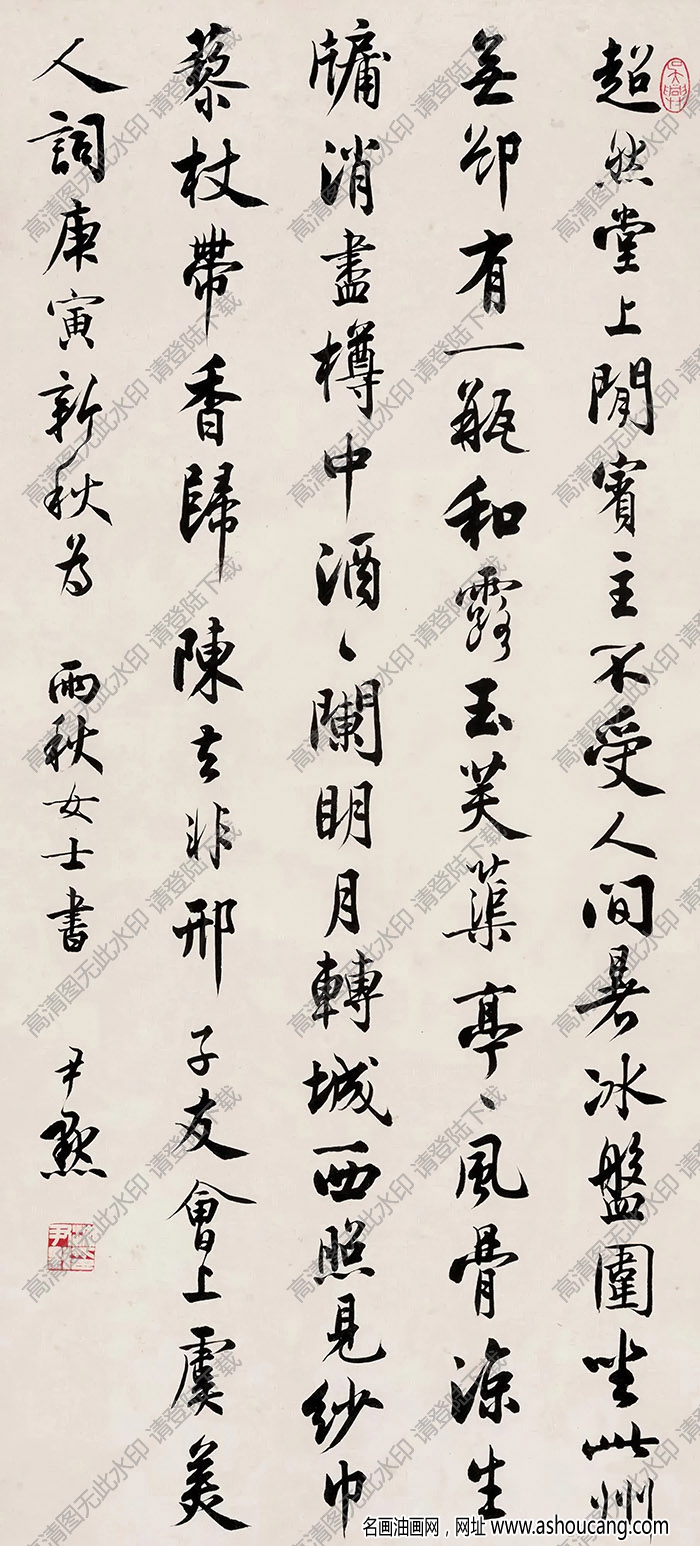 超然堂上閒賓主不受人間暑冰盤圍坐此州
無卻有一瓶和露玉芙蕖亭、風骨涼生
牖消盡樽中酒、闌明月轉城西照見紗巾
藜杖帶香歸 陳去非邢子友會上虞美
人詞庚寅新秋為 雨秋女士書 尹默
高清图无此水印 请登陆下载
名画油画网，网址 www.ashoucang.com